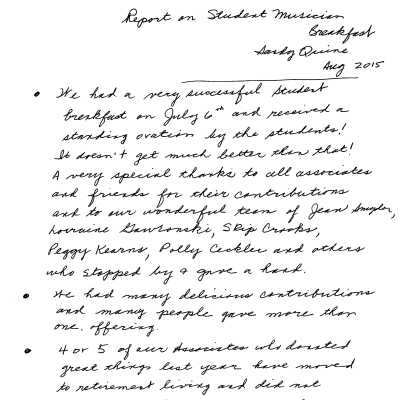 Report on Student Musician
Breakfast
Sandy Quine
Aug 2015
• We had a very successful student
breakfast on July 6th and received a
standing ovation by the students!
It doesn't get much better than that!
A very special thanks to all associates
and friends for their contributions
and to our wonderful team of Jean
Lorraine Gawronski, Skip Crooks,
Peggy Kearns, Polly Ceckler and others
who stopped by & gave a hand.
• We had many delicious contributions
and many people gave more than
one offering
• 4 or 5 of our Associates who donated
great things last year have moved
to retirement living and did not